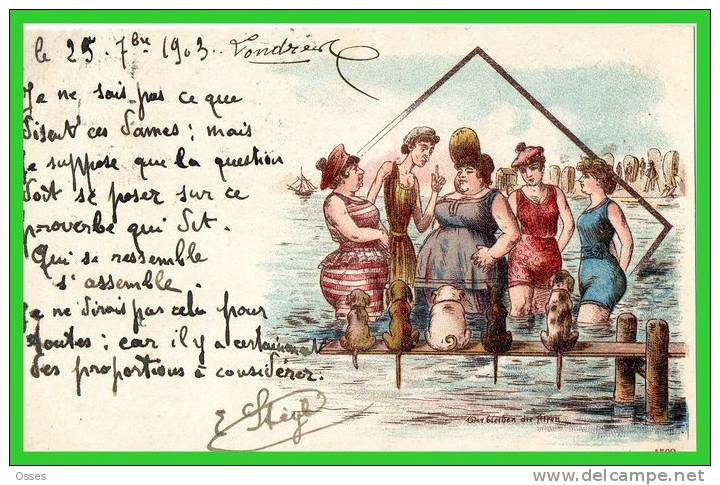 le 25. 7bre 1903. Londres
Je ne sais pas ce que
disent ces dames; mais
je suppose que la question
doit se poser sur ce
proverbe qui dit.
Qui se ressemble
s'assemble.
Je ne dirais pas cela pour
toutes; car il y a certainement
des proportions à considérer.
E
Wir bleiben die Alten
1599
Osses
delcampe.net